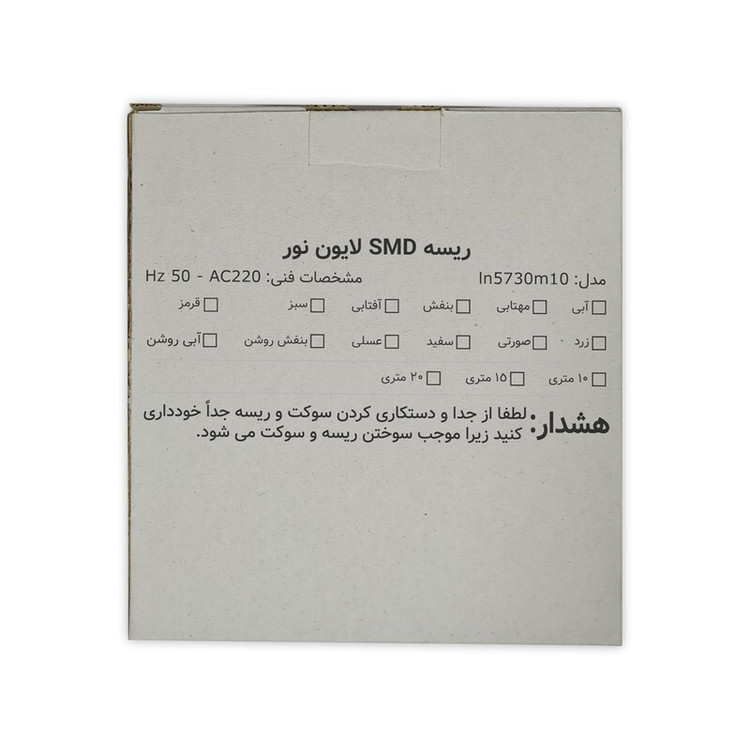 ریسه SMD لایون نور
مدل: ln5730m10 مشخصات فنی: Hz 50 - AC220
آبی مهتابی بنفش آفتابی سبز قرمز
زرد صورتی سفید عسلی بنفش روشن آبی روشن
۱۰ متری ۱۵ متری ۲۰ متری
هشدار: لطفا از جدا و دستکاری کردن سوکت و ریسه جداً خودداری
کنید زیرا موجب سوختن ریسه و سوکت می شود.